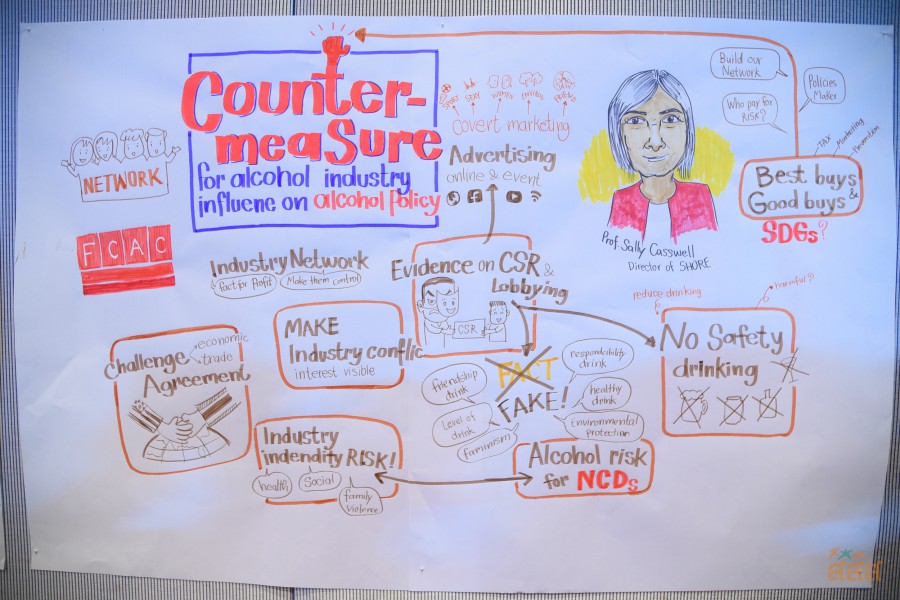 Counter-
measure
for alcohol industry
influene on alcohol policy
NETWORK
FCAC
covert marketing
Advertising
online & event
Prof. Sally Casswell
Director of SHORE
Build our
Network
Who pay for
RISK?
Policies
Maker
TAX
Marketing
Best buys
Good buys &
SDGs?
Industry Network
fact for Profit
Make them control
Evidence on CSR &
Lobbying
CSR
Challenge
Agreement
economic
trade
MAKE
Industry conflic
interest visible
FACT
FAKE!
friendship
drink
Level of
drink
Faminism
responsibility
drink
healthy
drink
Environmental
protection
reduce drinking
harmful?
No Safety
drinking
Industry
indendity RISK!
health
Social
family
violence
Alcohol risk
for NCDs
สสส